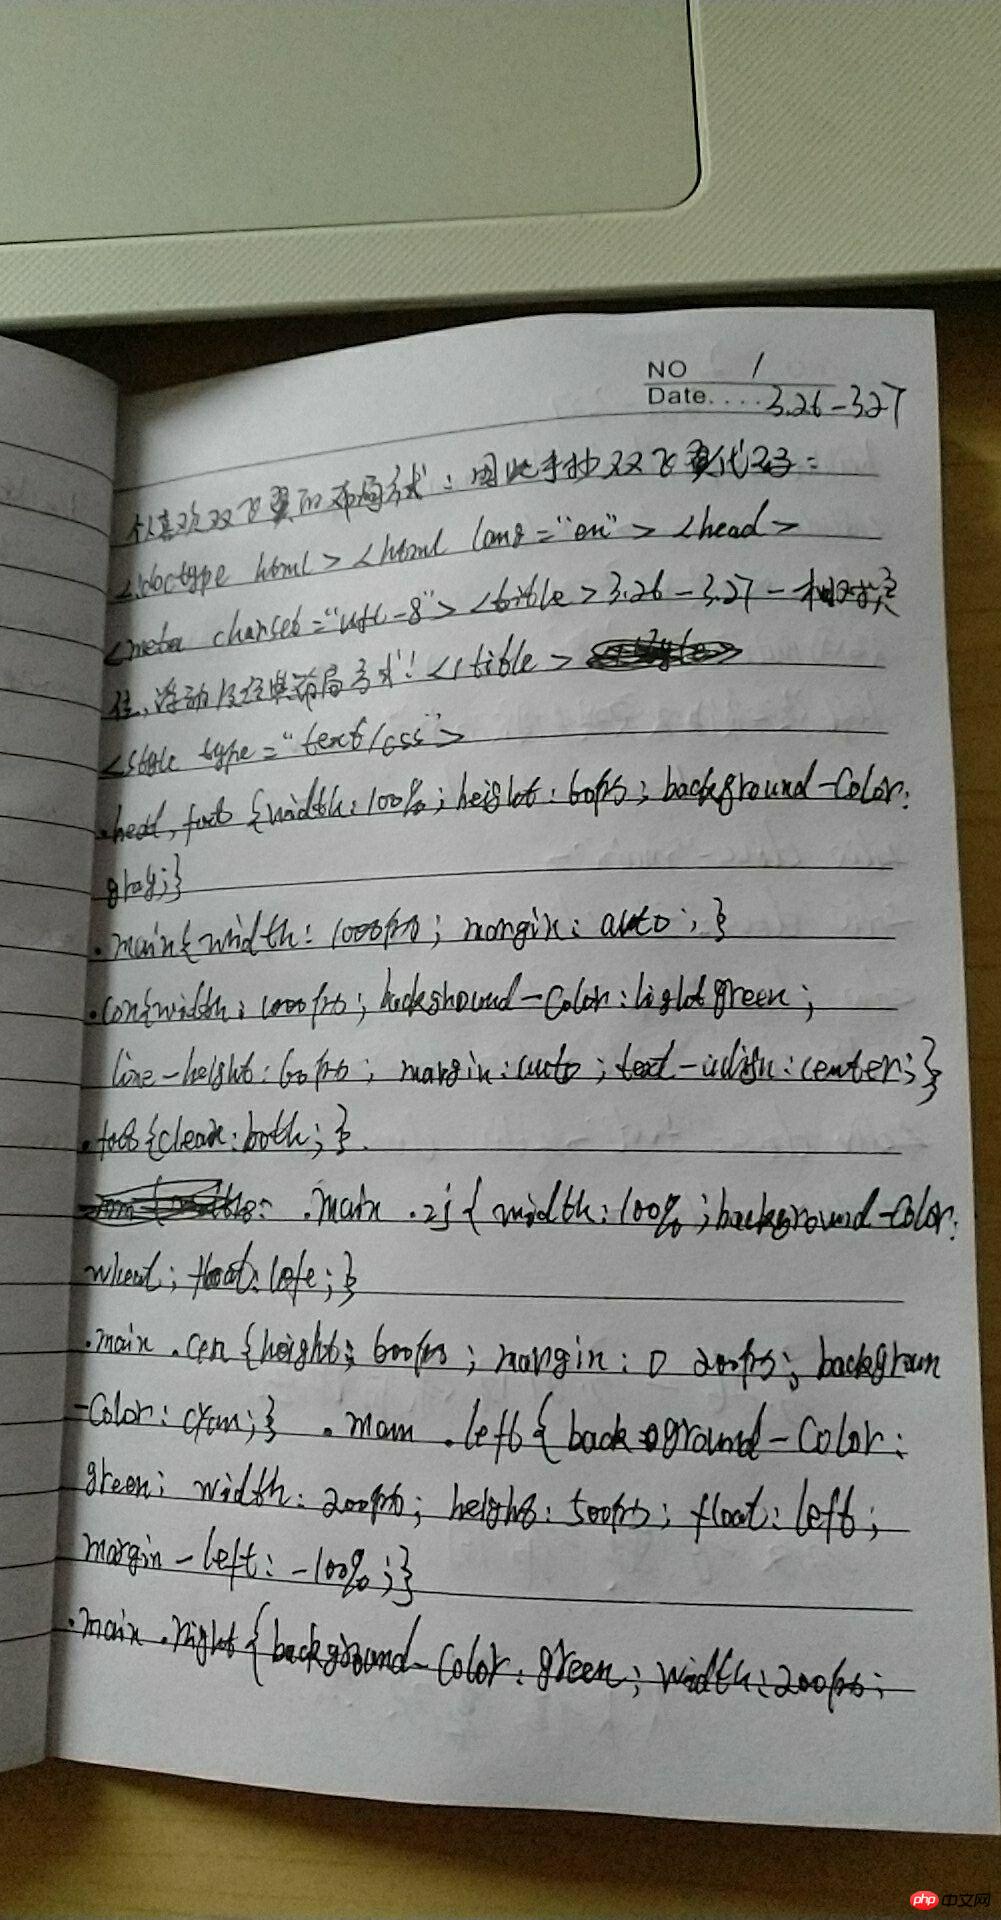 NO 1
Date.... 3.26-3.27
喜欢双飞翼的布局方式：因此手抄双飞翼代码：
<!doctype html> <html lang="en"> <head>
<meta charset="utf-8"> <title>3.26-3.27-
位,浮动及经典布局方式!</title>
<style type="text/css">
.head, foot {width:100%; height:60px; background-Color:
gray;}
.main{width: 1000px; margin: auto;}
.con{width: 1000px; background-Color:lightgreen;
line-height:60px; margin:auto; text-align:center;}
.foot{clear:both;}
.main .zj{width:100%; background-Color:
wheat; float:left;}
.main .cen {height: 600px; margin: 0 200px; backgroun
-Color: cyan;} .main .left{background-Color:
green; width: 200px; height: 500px; float: left;
margin-left: -100%;}
.main .right{background-Color: green; width:200px;
php中文网